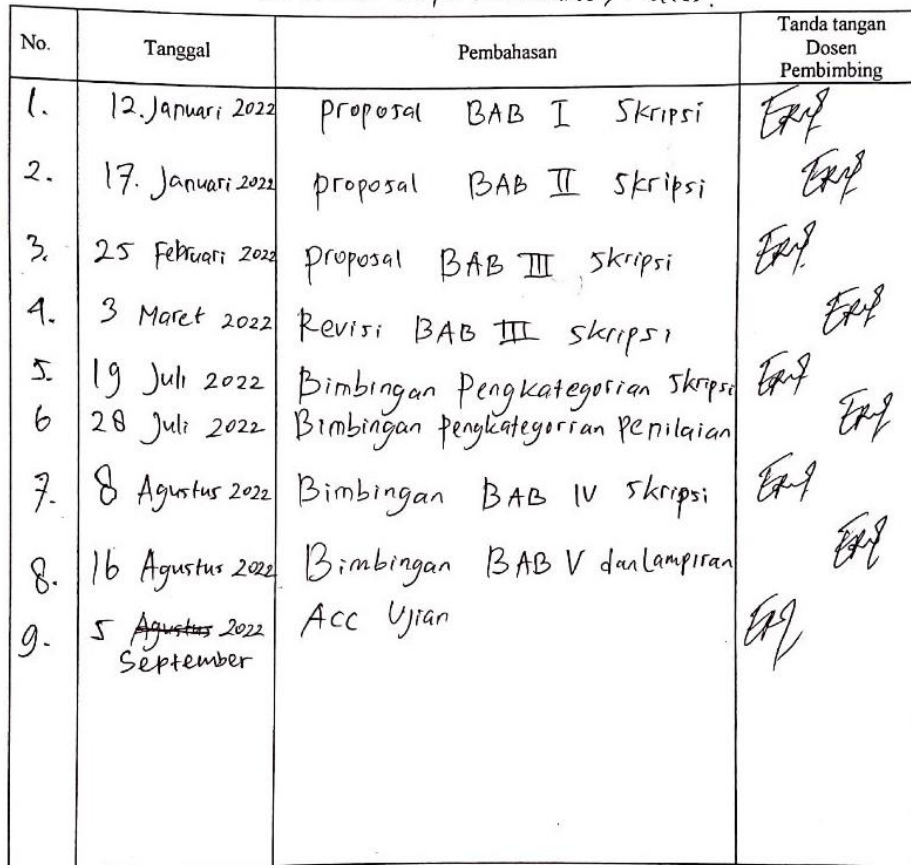 No. Tanggal Pembahasan Tanda tangan Dosen Pembimbing
1. 12. Januari 2022 proposal BAB I Skripsi
2. 17. Januari 2022 proposal BAB II Skripsi
3. 25 Februari 2022 proposal BAB III Skripsi
4. 3 Maret 2022 Revisi BAB III skripsi
5. 19 Juli 2022 Bimbingan Pengkategorian Skripsi
6 28 Juli 2022 Bimbingan pengkategorian Penilaian
7. 8 Agustus 2022 Bimbingan BAB IV skripsi
8. 16 Agustus 2022 Bimbingan BAB V dan lampiran
9. 5 Agustus 2022 Acc Ujian
September